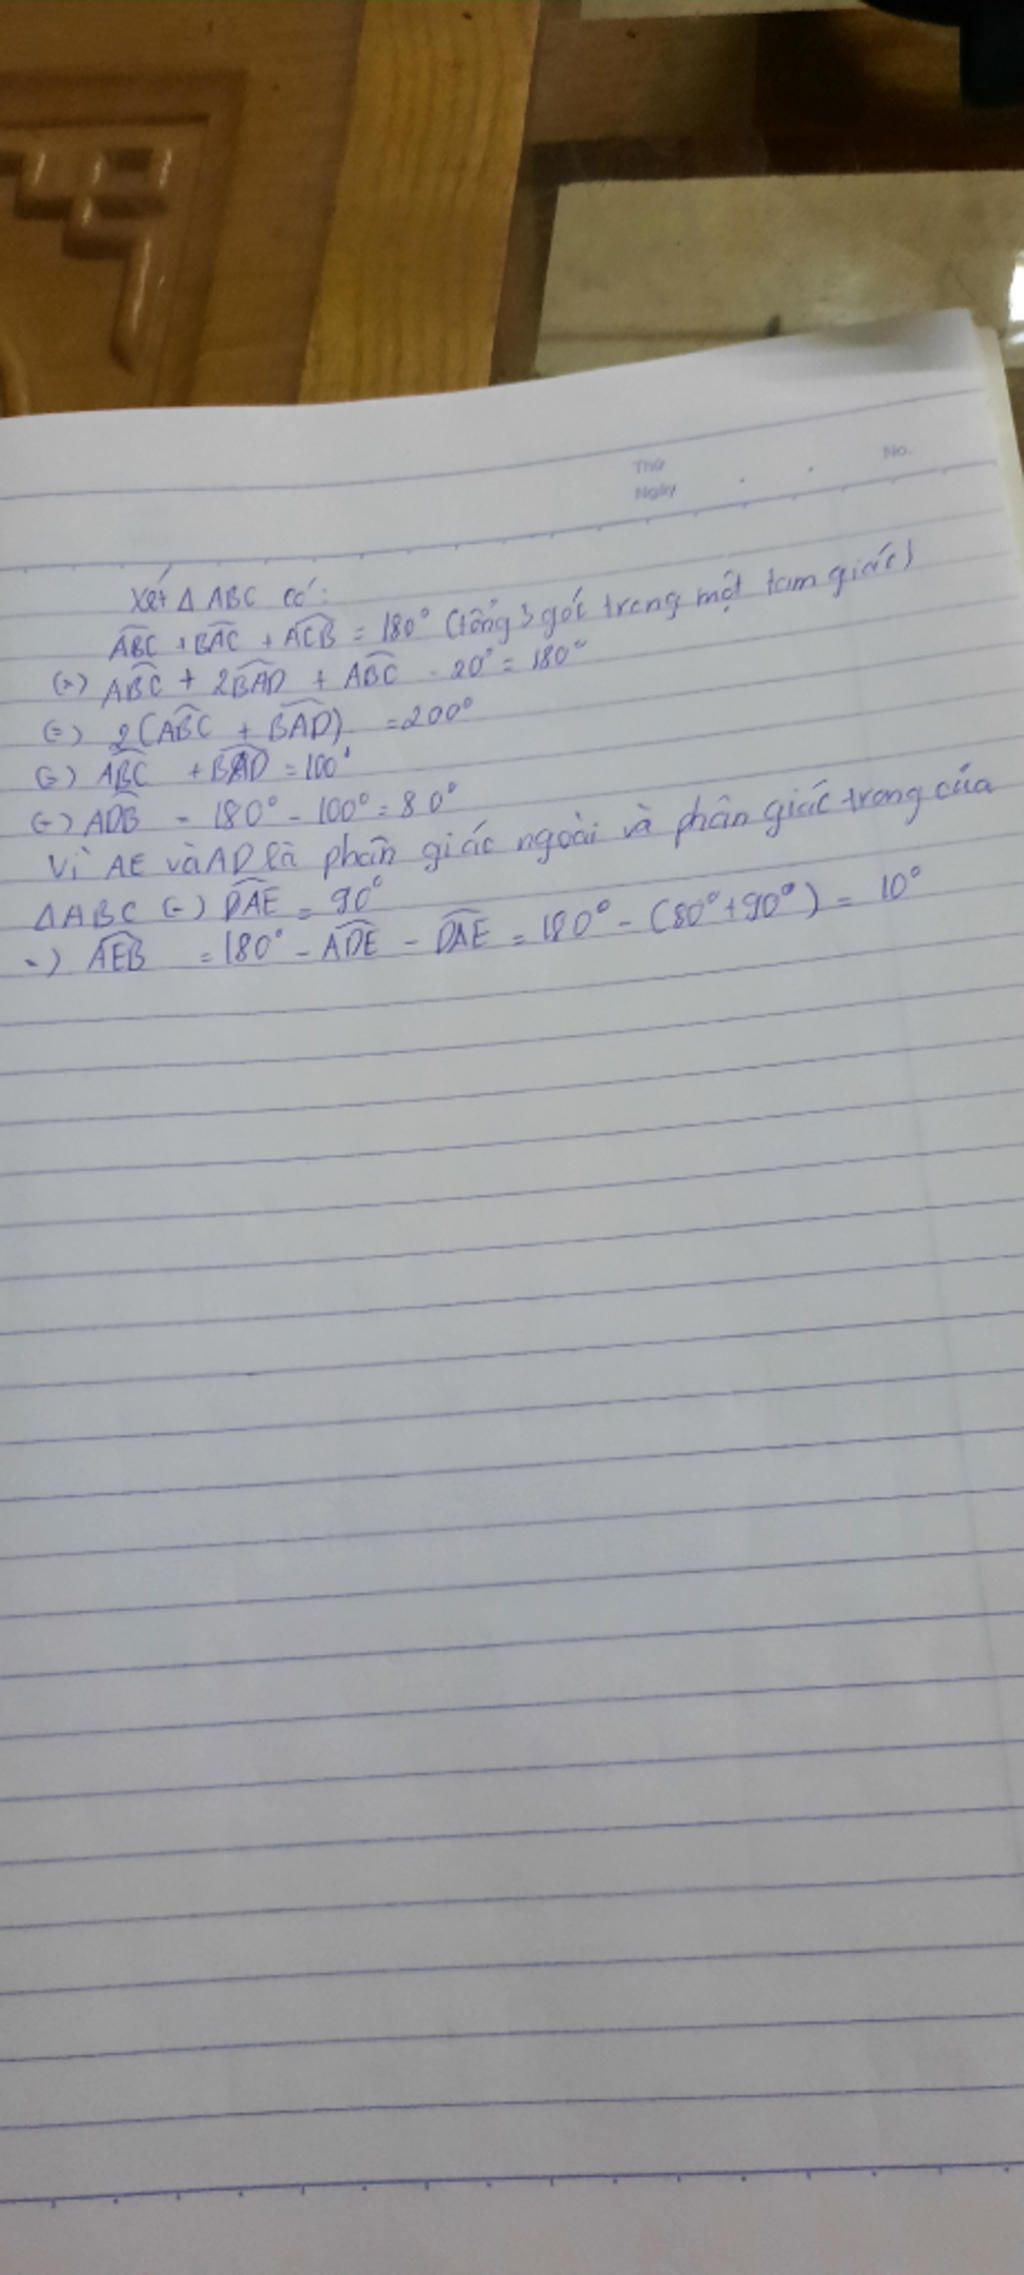 Thứ
Ngày
No.
Xét Δ ABC có:
ABC + BAC + ACB = 180° (tổng 3 góc trong một tam giác)
(=) ABC + 2BAD + ABC - 20° = 180°
(=) 2(ABC + BAD) = 200°
(=) ABC + BAD = 100°
(=) ADB = 180° - 100° = 80°
Vì AE và AD là phân giác ngoài và phân giác trong của
ΔABC (=) DAE = 90°
=) AEB = 180° - ADE - DAE = 180° - (80° + 90°) = 10°